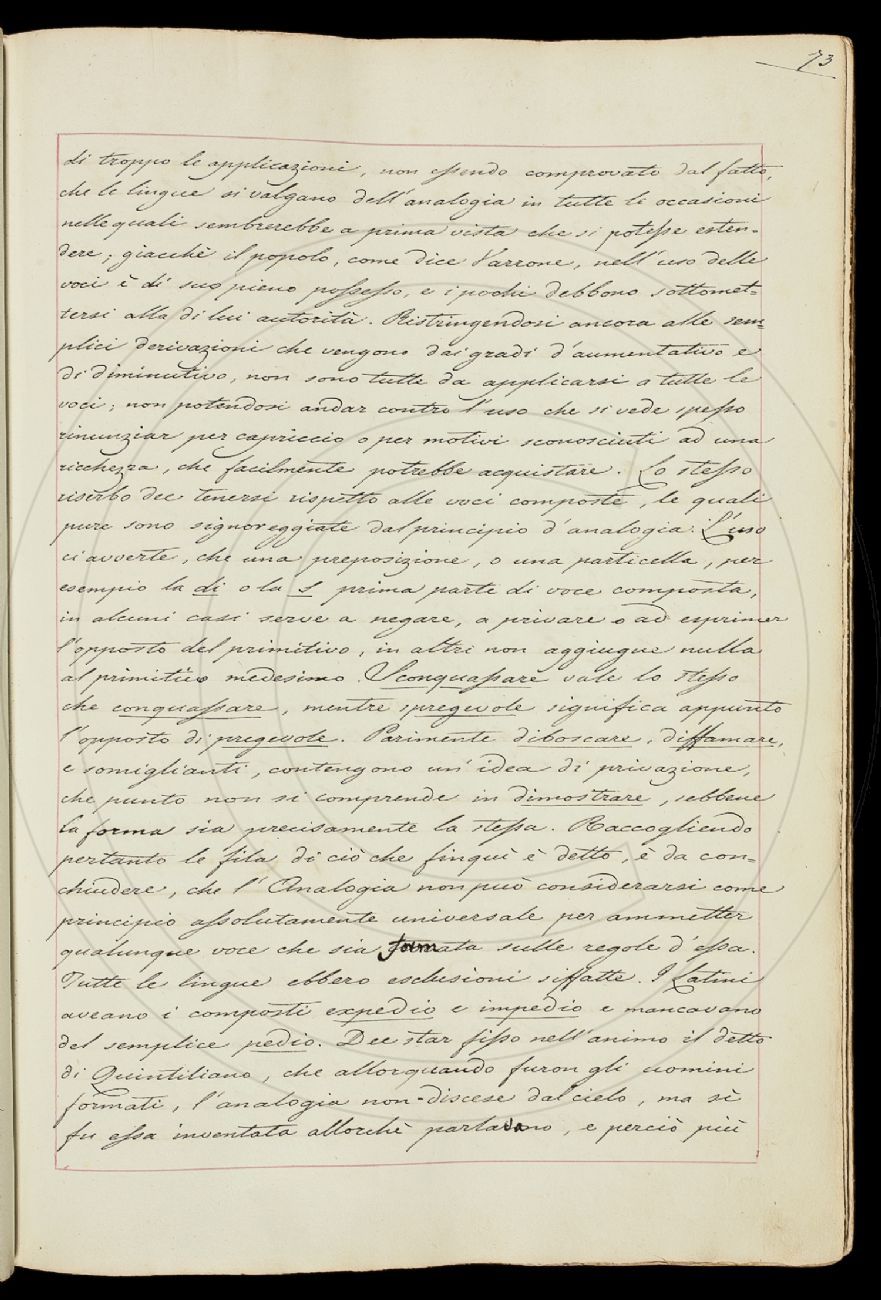 73
di troppo le applicazioni, non essendo comprovato dal fatto,
che le lingue si valgano dell'analogia in tutte le occasioni
nelle quali sembrerebbe a prima vista che si potesse esten=
dere; giacchè il popolo, come dice Varrone, nell'uso delle
voci è di suo pieno possesso, e i pochi debbono sottomet=
tersi alla di lui autorità. Ristringendosi ancora alle sem=
plici derivazioni che vengono dai gradi d'aumentativo e
di diminutivo, non sono tutte da applicarsi a tutte le
voci; non potendosi andar contro l'uso che si vede spesso
rinunziar per capriccio o per motivi sconosciuti ad una
ricchezza, che facilmente potrebbe acquistare. Lo stesso
riserbo dee tenersi rispetto alle voci composte, le quali
pure sono signoreggiate dal principio d'analogia. L'uso
ci avverte, che una preposizione, o una particella, per
esempio la di o la s prima parte di voce composta,
in alcuni casi serve a negare, a privare o ad esprimer
l'opposto del primitivo, in altri non aggiugne nulla
al primitivo medesimo. Sconquassare vale lo stesso
che conquassare, mentre spregevole significa appunto
l'opposto di pregevole. Parimente diboscare, diffamare,
e somiglianti, contengono un'idea di privazione,
che punto non si comprende in dimostrare, sebbene
la forma sia precisamente la stessa. Raccogliendo
pertanto le fila di ciò che finquì è detto, è da con=
chiudere, che l'Analogia non può considerarsi come
principio assolutamente universale per ammetter
qualunque voce che sia formata sulle regole d'essa.
Tutte le lingue ebbero esclusioni siffatte. I Latini
aveano i composti expedio e impedio e mancavano
del semplice pedio. Dee star fisso nell'animo il detto
di Quintiliano, che allorquando furon gli uomini
formati, l'analogia non discese dal cielo, ma sì
fu essa inventata allorchè parlavano, e perciò più